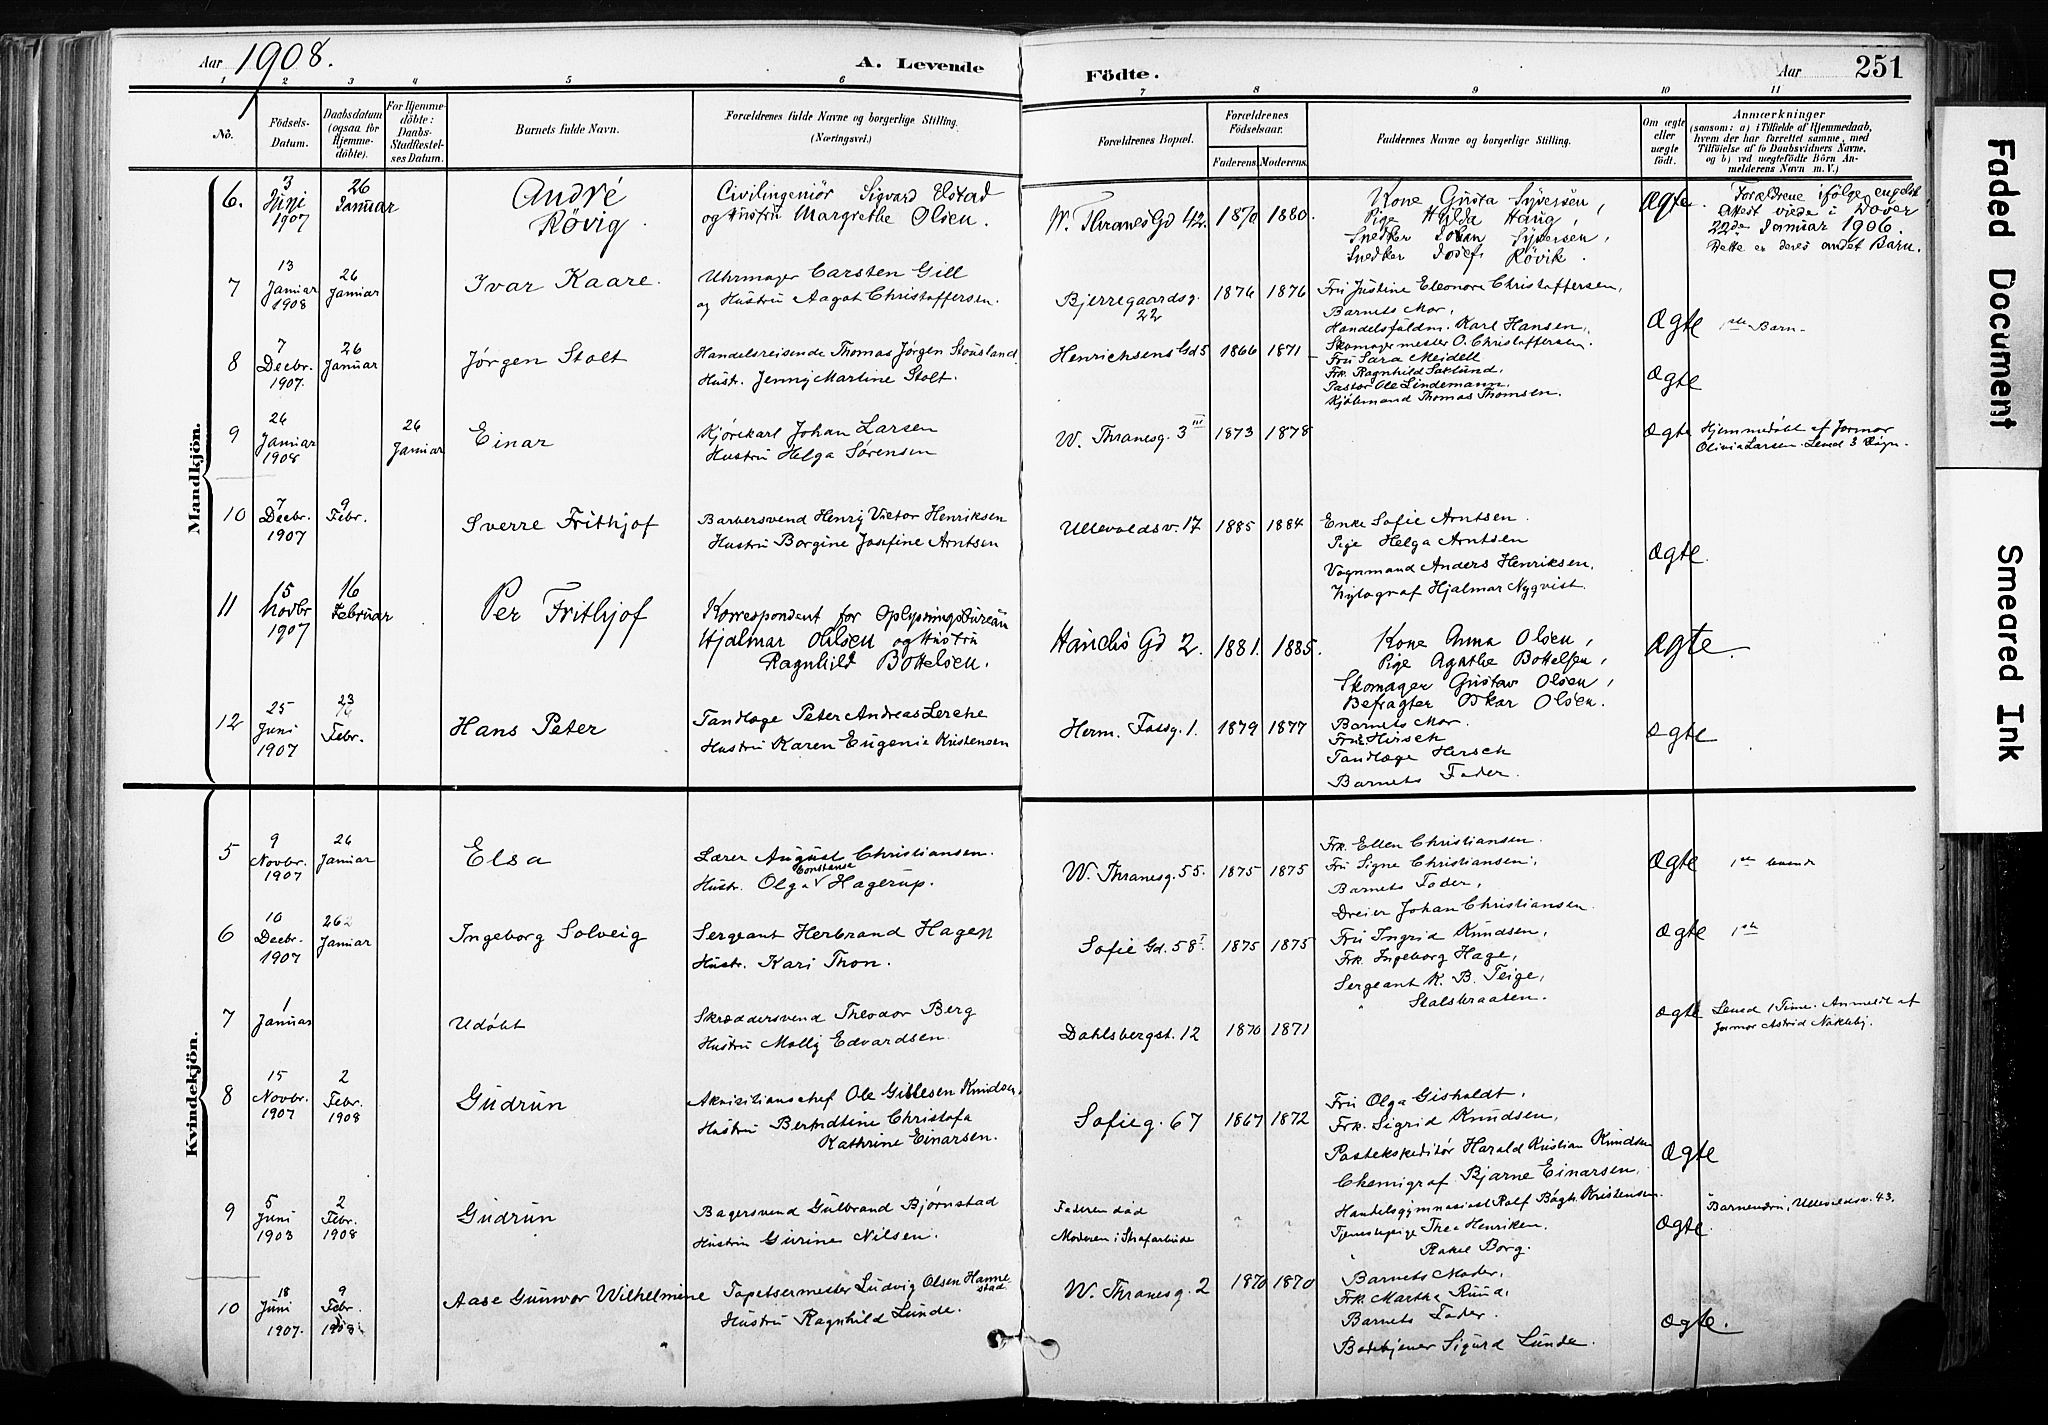 Aar 1908. A. Levende Födte. Aar 251
1 2 3 4 5 6 7 8 9 10 11
Nö.
Födsels-
Datum.
Daabsdatum
(ogsaa for
Hjemme-
döbte).
For Hjemme-
döbte:
Daabs-
Stadfæstel-
ses Datum.
Barnets fulde Navn.
Forældrenes fulde Navne og borgerlige Stilling.
(Næringsvei.)
Forældrenes Bopæl.
Forældrenes
Födselsaar.
Faderens. Moderens.
Faddernes Navne og borgerlige Stilling.
Om ægte
eller
uægte
födt.
Anmærkninger
(saasom: a) i Tilfælde af Hjemmedaab,
hvem der har forrettet samme, med
Tilföielse af to Daabsvidners Navne,
og b) ved uægtefödte Börn An-
melderens Navn m. V.)
Mandkjön.
6. 3 Juni 1907
26 Januar
André
Rövig
Civilingeniör Sigvard Elstad
og Hustru Margrethe Olsen.
W. Thranes Gd 42. 1870 1880.
Kone Gusta Syversen,
Pige Hilda Haug,
Snedker Johan Syversen,
Snedker Josef Rövik.
Ægte.
Forældrene ifölge engelsk
Attest viede i Dover
22de Januar 1906.
Dette er deres andet Barn.
7 13 Januar 1908
26 Januar
Ivar Kaare.
Uhrmager Carsten Gill
og Hustru Aagot Christoffersen.
Bjerregaardsg. 22
1876 1876
Fru Justine Eleonore Christoffersen,
Barnets Mor,
Handelsfuldm. Karl Hansen,
Skomagermester O. Christoffersen.
Ægte 1ste Barn.
8 7 Decbr. 1907.
26 Januar
Jørgen Stolt
Handelsreisende Thomas Jørgen Stousland
Hustr. Jenny Martine Stolt.
Henrichsens Gd 5 1866 1871
Fru Sara Meidell
Frk. Ragnhild Saklund,
Pastor Ole Lindemann,
Kjøbmand Thomas Thomsen.
Ægte
9 26 Januar 1908
26 Januar
Einar
Kjørekarl Johan Larsen
Hustru Helga Sørensen
W. Thranesg. 3 III 1873 1878
Ægte
Hjemmedøbt af Jormor
Olivia Larsen. Leved 3 Døgn.
10 7 Decbr. 1907
9 Febr.
Sverre Frithjof
Barbersvend Henry Victor Henriksen
Hustru Borgine Josefine Arntsen
Ullevoldsv. 17 1885 1884
Enke Sofie Arntsen.
Pige Helga Arntsen
Vognmand Anders Henriksen,
Xylograf Hjalmar Nyqvist.
Ægte.
11 15 Novbr 1907
16 Februar
Per Frithjof
Korrespondent for Oplysningsbureau
Hjalmar Olsen og Hustru
Ragnhild Bottelsen.
Hauchs Gd 2. 1881. 1885.
Kone Anna Olsen,
Pige Agathe Bottelsen,
Skomager Gustav Olsen,
Befragter Oskar Olsen.
Ægte.
12 25 Juni 1907
23 Febr.
Hans Peter
Tandlæge Peter Andreas Lerche
Hustru Karen Eugenie Kristensen
Herm. Fossg. 1. 1879 1877
Barnets Mor.
Fru Hirsch
Tandlæge Hirsch
Barnets Fader.
Ægte
Kvindekjön.
5 9 Novbr. 1907
26 Januar
Elsa
Lærer August Christiansen.
Hustr. Olga Constance Hagerup.
W. Thranesg. 55. 1875 1875
Frk. Ellen Christiansen.
Fru Signe Christiansen,
Barnets Fader,
Dreier Johan Christiansen.
Ægte 1ste levende
6 10 Decbr. 1907
26 Januar
Ingeborg Solveig
Sergeant Herbrand Hagen
Hustr. Kari Thon.
Sofie Gd. 58 I. 1875 1875
Fru Ingrid Knudsen,
Frk. Ingeborg Hage,
Sergeant K. B. Teige,
" Stalsbraaten.
Ægte 1ste
7 1 Januar
Udøbt
Skræddersvend Theodor Berg
Hustru Molly Edvardsen.
Dahlsbergst. 12 1870 1871
Ægte
Leved 1 Time. Anmeldt af
Jormor Astrid Nakleby.
8 15 Novbr. 1907
2 Febr. 1908
Gudrun
Akvisitionschef Ole Gillesen Knudsen,
Hustru Berndtine Christofa
Kathrine Einarsen.
Sofieg. 67 1867 1872
Fru Olga Gisholdt,
Frk. Sigrid Knudsen,
Harald Kristian Knudsen
Chemigraf Bjarne Einarsen.
Ægte
9 5 Juni 1903
2 Febr. 1908
Gudrun
Bagersvend Gulbrand Bjørnstad
Hustru Gurine Nilsen.
Faderen død
Moderen i Strafarbeide
" "
Handelsgymnasiast Rolf Bøgh Kristensen.
Tjenestepige Thea Henriksen.
" Rakel Borg.
Ægte
Ullevoldsv. 43.
10 18 Juni 1907.
9 Febr. 1908
Aase Gunvor Wilhelmine
Tapetsermester Ludvig Olsen Hanne-
stad.
Hustru Ragnhild Lunde.
W. Thranesg. 2 1870 1870
Barnets Moder,
Frk. Martha Ruud,
Barnets Fader.
Sigurd Lunde.
Ægte.
Faded Document
Smeared Ink